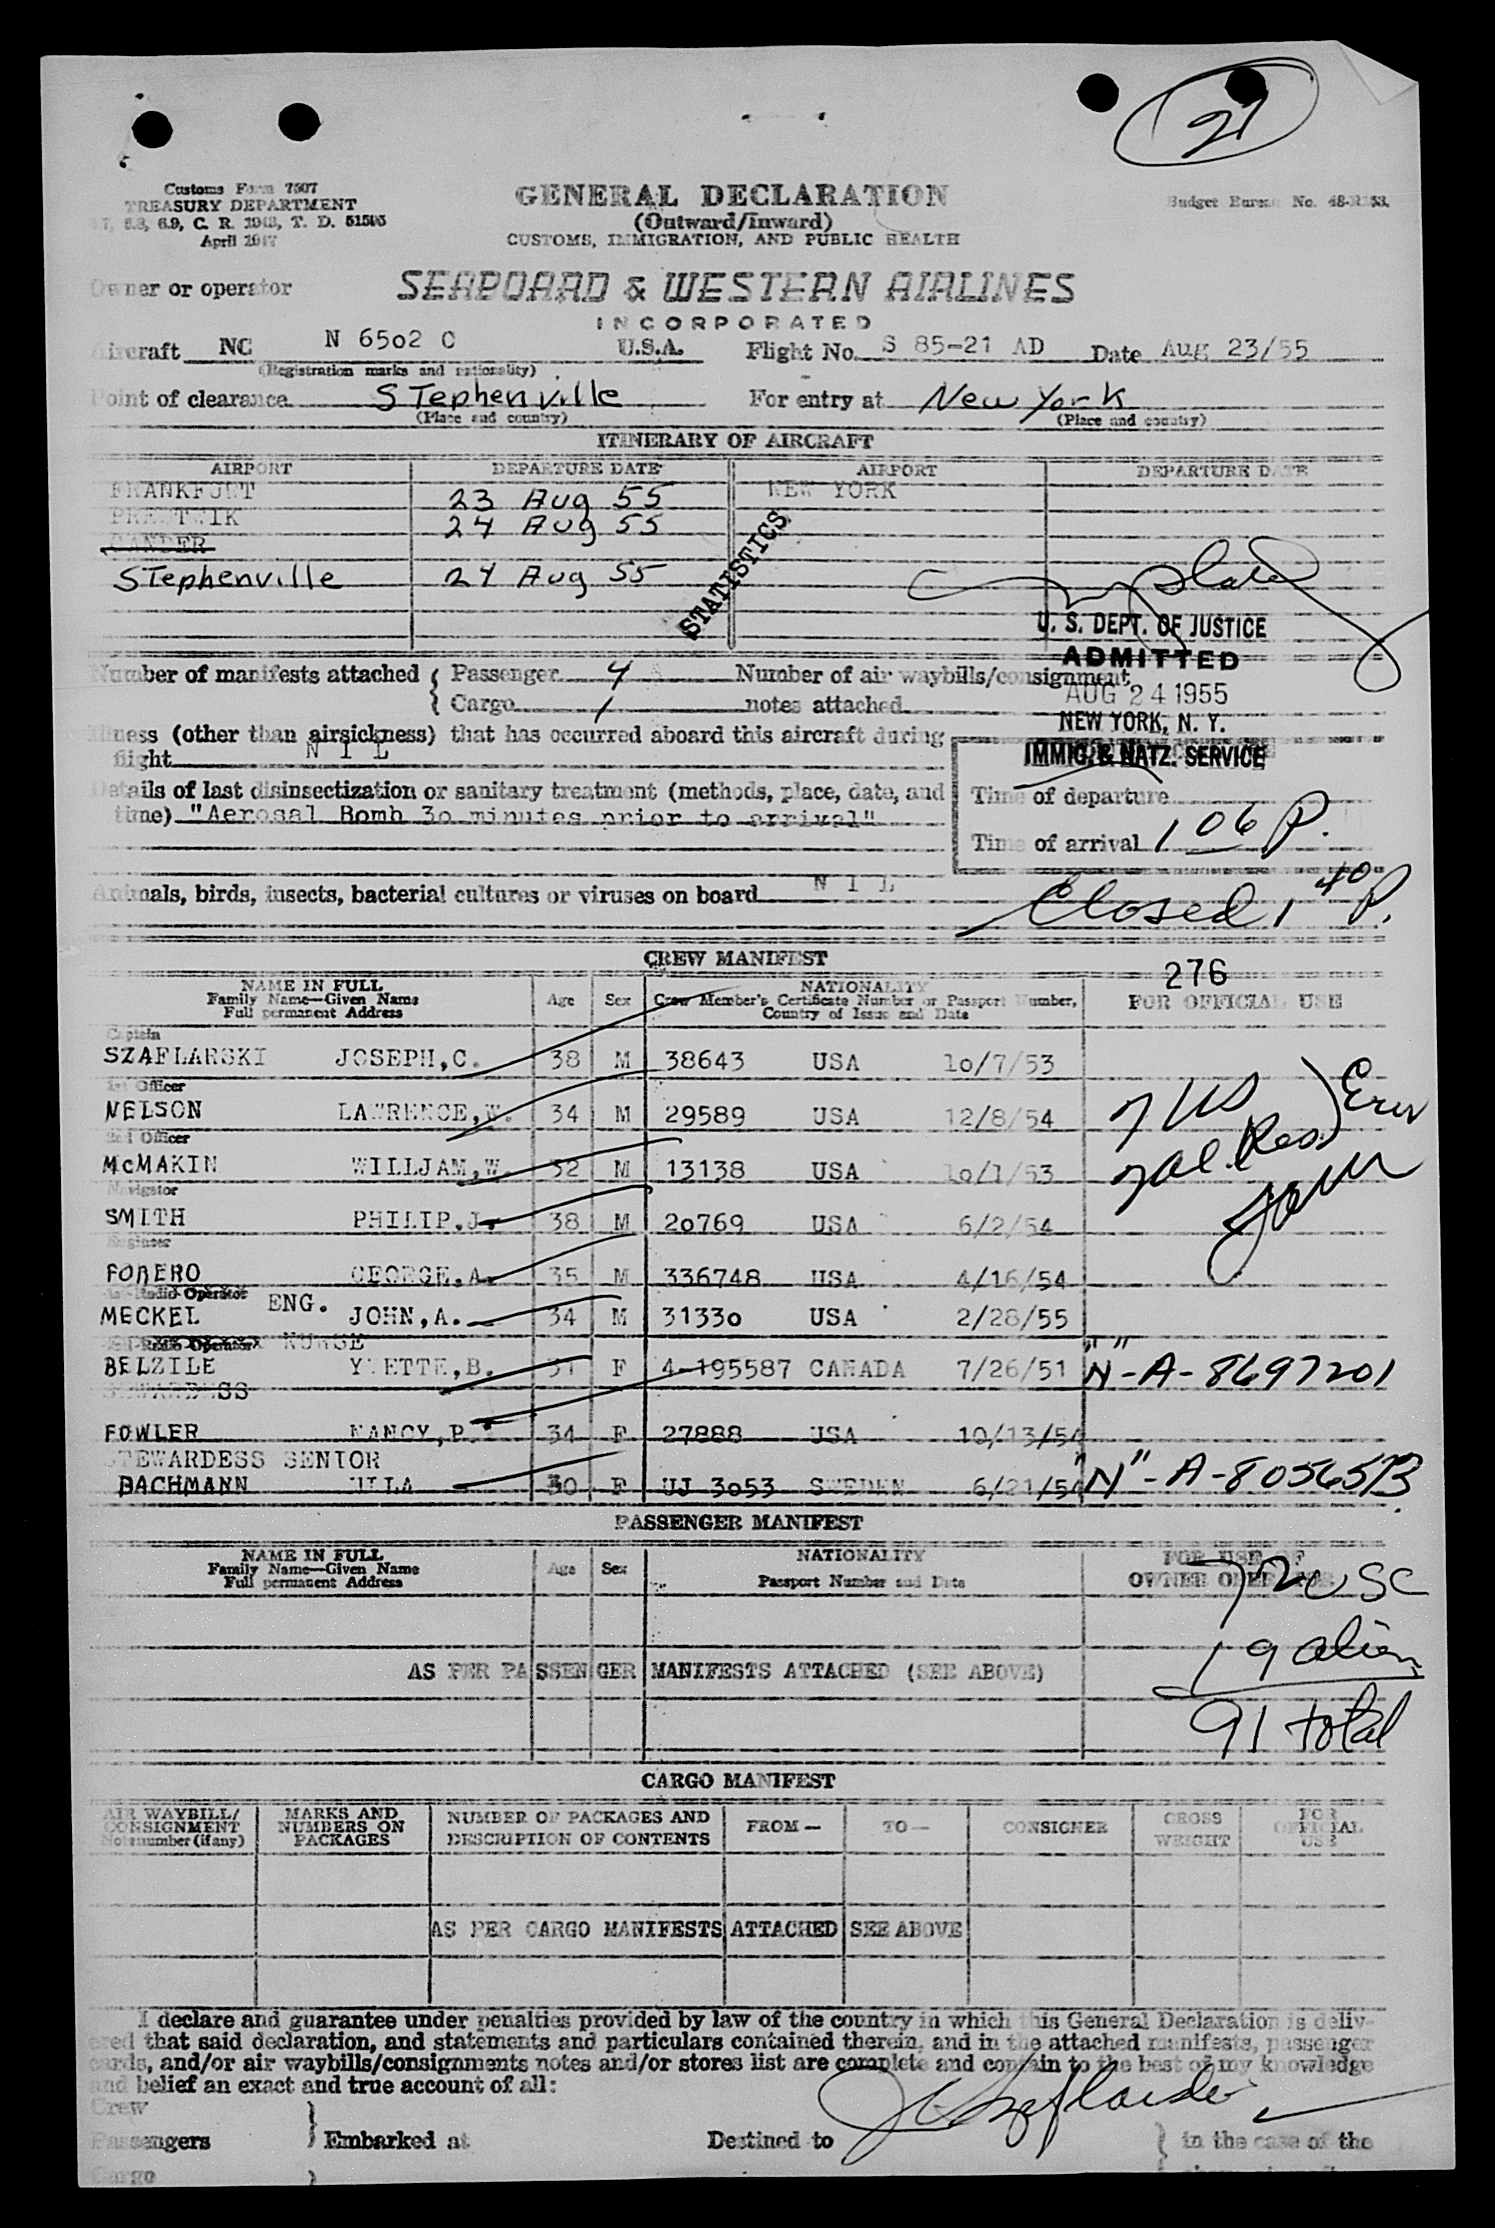 21
Customs Form 7507
TREASURY DEPARTMENT
6.9, C. R. 1943, T. D. 51595
April 1947
GENERAL DECLARATION
(Outward/Inward)
CUSTOMS, IMMIGRATION, AND PUBLIC HEALTH
Budget Bureau No. 48-R153.
Owner or operator SEABOARD & WESTERN AIRLINES
INCORPORATED
Aircraft NC N 6502 C U.S.A. Flight No. S 85-21 AD Date Aug 23/55
(Registration marks and nationality)
Point of clearance STephenville For entry at New York
(Place and country) (Place and country)
ITINERARY OF AIRCRAFT
AIRPORT DEPARTURE DATE AIRPORT DEPARTURE DATE
FRANKFURT 23 Aug 55 NEW YORK
PRESTWIK 24 Aug 55
GANDER
STephenville 24 Aug 55
STATISTICS
U. S. DEPT. OF JUSTICE
ADMITTED
AUG 24 1955
NEW YORK, N. Y.
IMMIG. & NATZ. SERVICE
Number of manifests attached { Passenger 4 Number of air waybills/consignment
{ Cargo 1 notes attached
Illness (other than airsickness) that has occurred aboard this aircraft during
flight N I L
Details of last disinsectization or sanitary treatment (methods, place, date, and
time) "Aerosal Bomb 30 minutes prior to arrival"
Time of departure
Time of arrival 1 06 P.
Animals, birds, insects, bacterial cultures or viruses on board N I L
Closed 1 40 P.
CREW MANIFEST
276
NAME IN FULL
Family Name—Given Name
Full permanent Address
Age Sex
NATIONALITY
Crew Member's Certificate Number or Passport Number,
Country of Issue and Date
FOR OFFICIAL USE
Captain
SZAFLARSKI JOSEPH,C. 38 M 38643 USA 10/7/53
1st Officer
NELSON LAWRENCE,W. 34 M 29589 USA 12/8/54
2nd Officer
McMAKIN WILLJAM,W. 32 M 13138 USA 10/1/53
Navigator
SMITH PHILIP.J. 38 M 20769 USA 6/2/54
Engineer
FORERO GEORGE,A. 35 M 336748 USA 4/16/54
Radio Operator ENG.
MECKEL JOHN,A. 34 M 31330 USA 2/28/55
Radio Operator NURSE
BELZILE YVETTE,B. 31 F 4-195587 CANADA 7/26/51 "N"-A-8697201
STEWARDESS
FOWLER NANCY,P. 34 F 27888 USA 10/13/54
STEWARDESS SENIOR
BACHMANN ULLA 30 F UJ 3053 SWEDEN 6/21/54 "N"-A-8056573
7 US
2 al. Res.
PASSENGER MANIFEST
NAME IN FULL
Family Name—Given Name
Full permanent Address
Age Sex
NATIONALITY
Passport Number and Date
FOR USE OF
OWNER OR
72 USC
19 alien
91 total
AS PER PASSENGER MANIFESTS ATTACHED (SEE ABOVE)
CARGO MANIFEST
AIR WAYBILL/
CONSIGNMENT
Note number (if any)
MARKS AND
NUMBERS ON
PACKAGES
NUMBER OF PACKAGES AND
DESCRIPTION OF CONTENTS
FROM—
TO—
CONSIGNEE
GROSS
WEIGHT
FOR
OFFICIAL
USE
AS PER CARGO MANIFESTS ATTACHED SEE ABOVE
I declare and guarantee under penalties provided by law of the country in which this General Declaration is deliv-
ered that said declaration, and statements and particulars contained therein, and in the attached manifests, passenger
cards, and/or air waybills/consignments notes and/or stores list are complete and contain to the best of my knowledge
and belief an exact and true account of all:
Crew
Passengers } Embarked at Destined to } in the case of the
Cargo